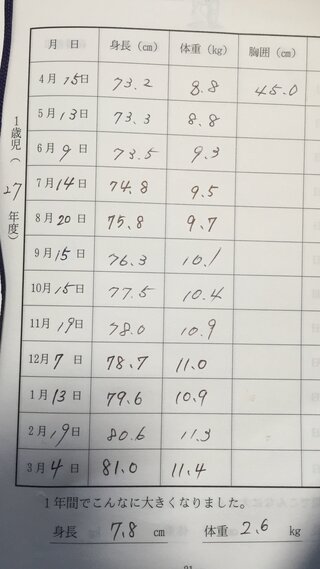 月 日 身長(cm) 体重(kg) 胸囲(cm)
1歳児(27年度)
4月15日 73.2 8.8 45.0
5月13日 73.3 8.8
6月9日 73.5 9.3
7月14日 74.8 9.5
8月20日 75.8 9.7
9月15日 76.3 10.1
10月15日 77.5 10.4
11月19日 78.0 10.9
12月7日 78.7 11.0
1月13日 79.6 10.9
2月19日 80.6 11.3
3月4日 81.0 11.4
1年間でこんなに大きくなりました。
身長 7.8 cm 体重 2.6 kg